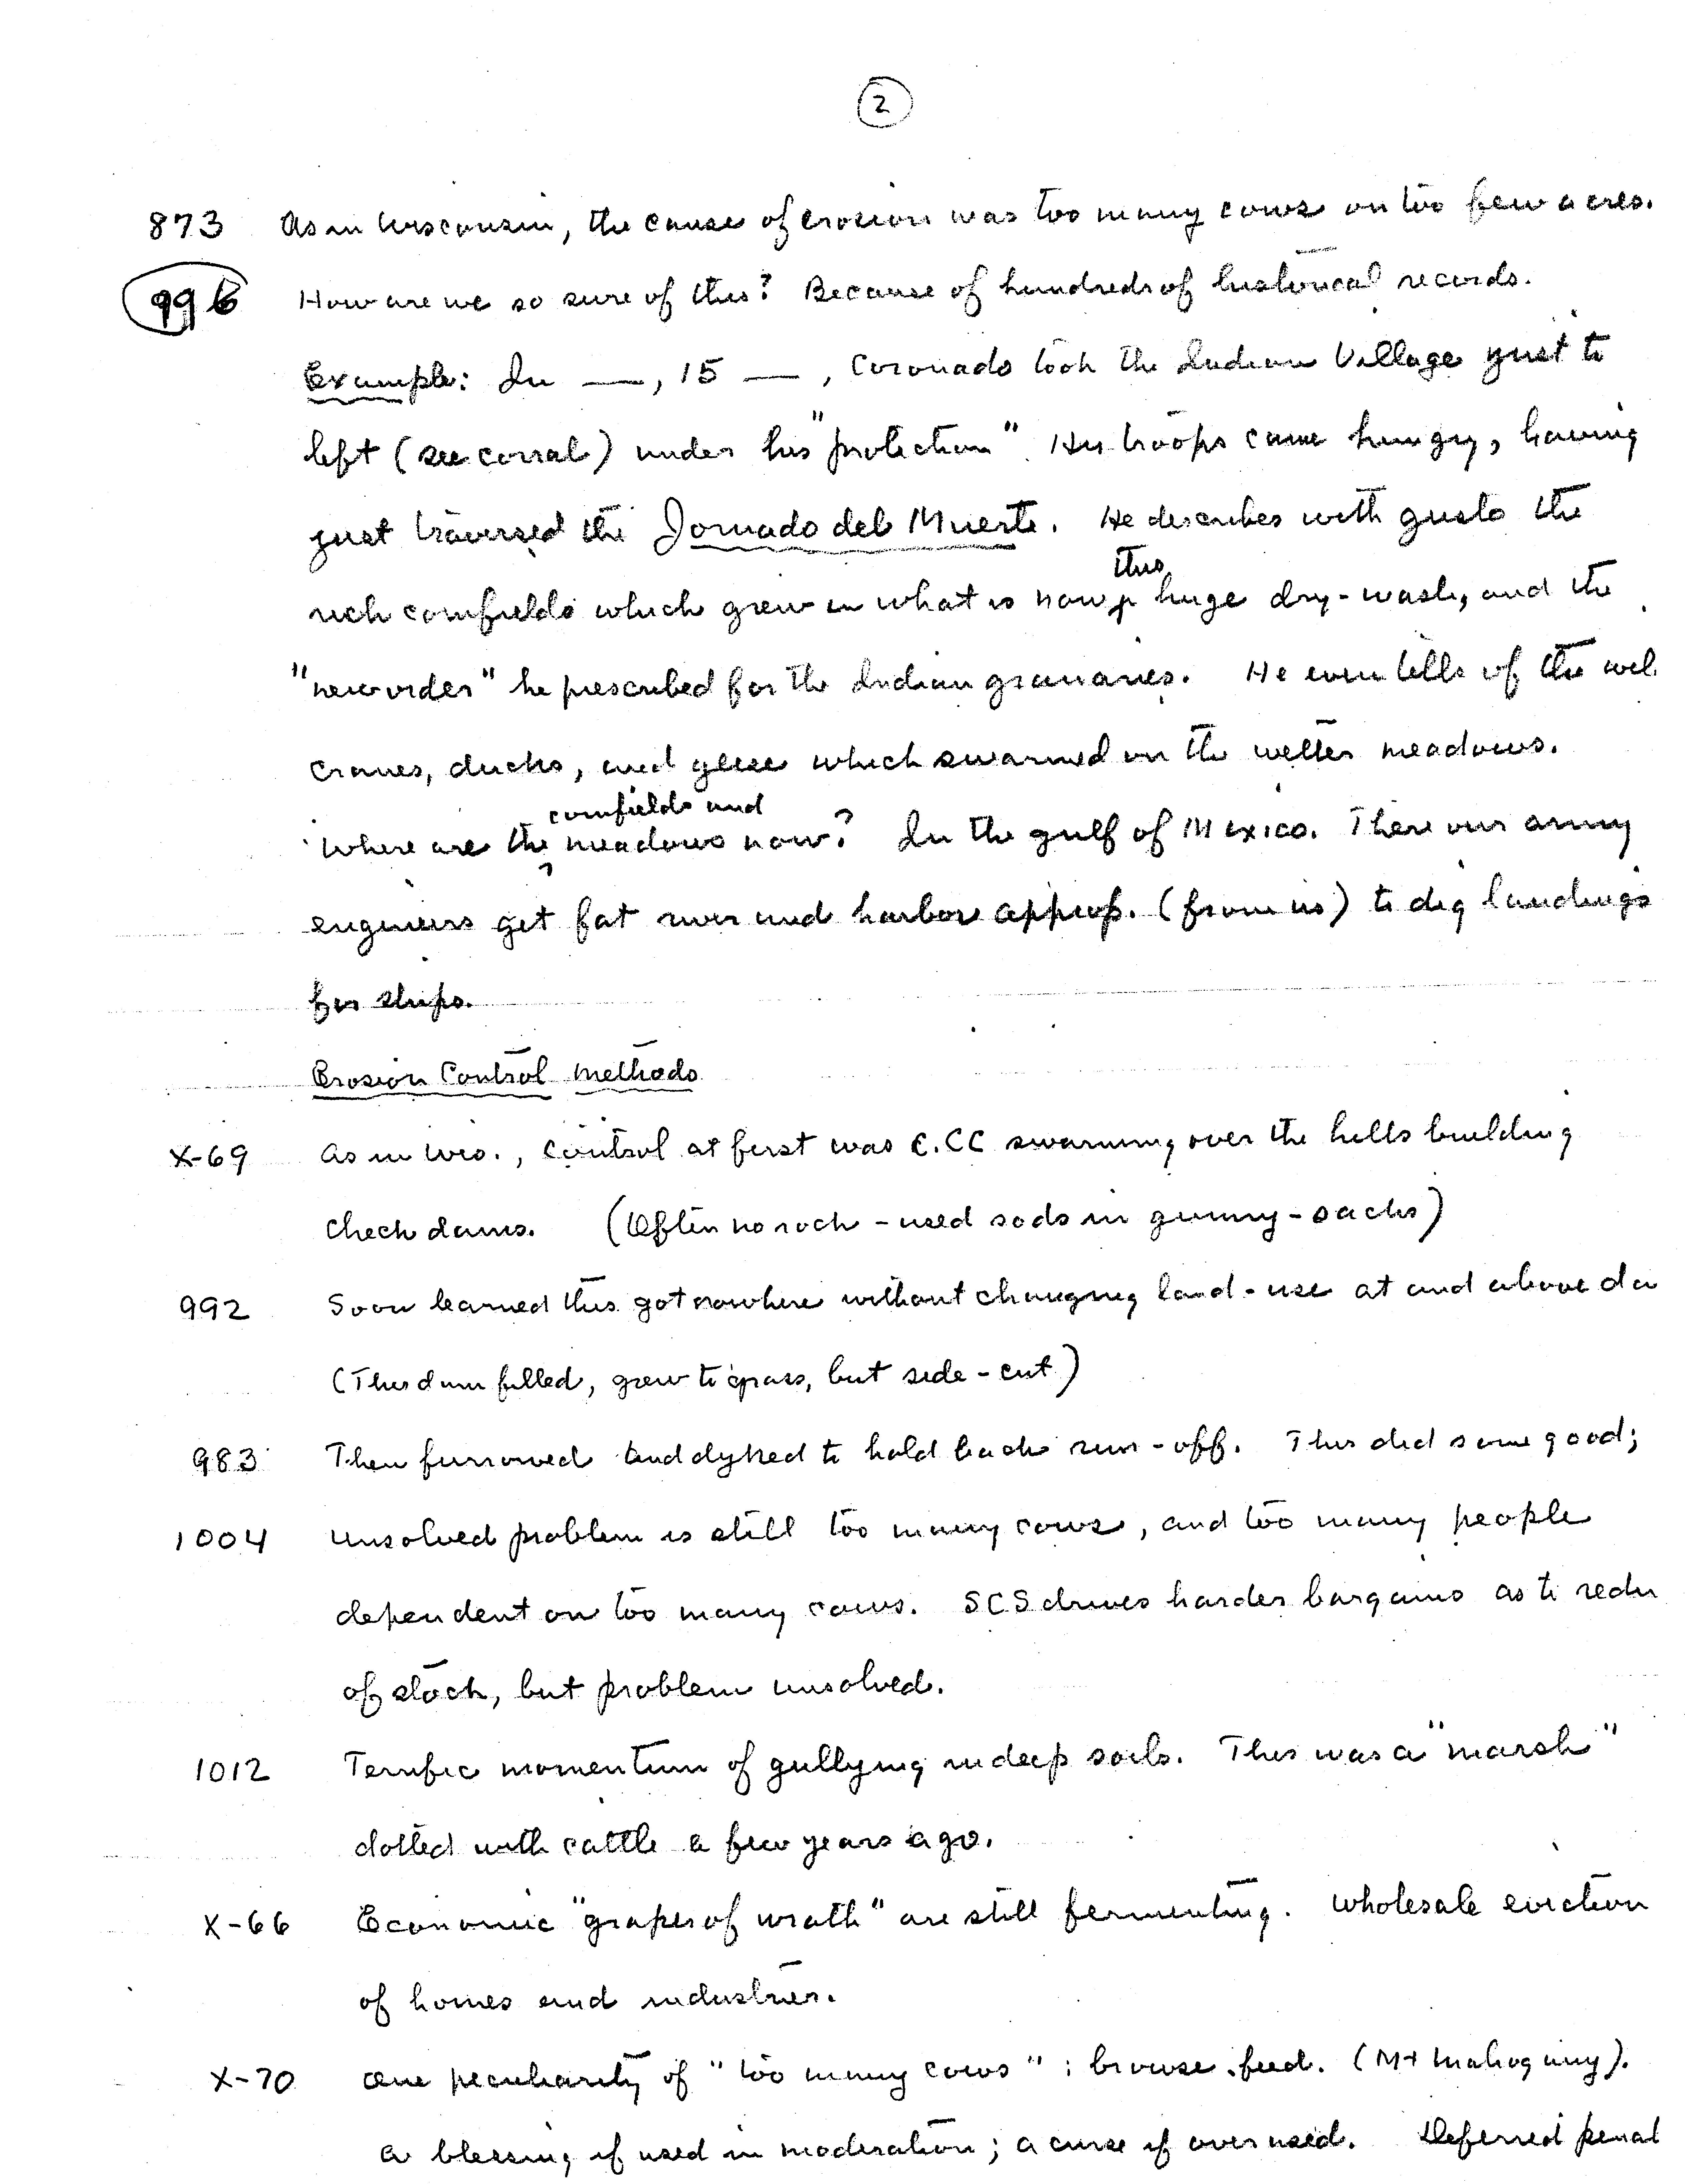 2
873 As in Wisconsin, the cause of erosion was too many cows on too few acres.
996 How are we so sure of this? Because of hundreds of historical records.
Example: In —, 15 —, Coronado took the Indian Village just to
left (see corral) under his "protection". His troops came hungry, having
just traversed the Jornado del Muerte. He describes with gusto the
this
rich cornfields which grew in what is now huge dry-wash, and the
"new order" he prescribed for the Indian granaries. He even tells of the wil
cranes, ducks, and geese which swarmed on the wetter meadows.
cornfields and
Where are the meadows now? In the gulf of Mexico. There our army
engineers get fat river and harbor approp. (from us) to dig landings
for ships.
Erosion Control Methods
X-69 As in Wis., control at first was C.CC swarming over the hills building
check dams. (Often no rock - used sods in gunny-sacks)
992 Soon learned this got nowhere without changing land-use at and above da
(This dam filled, grew to grass, but side-cut)
983 Then furrowed and dyked to hold back run-off. This did some good;
1004 Unsolved problem is still too many cows, and too many people
dependent on too many cows. SCS drives harder bargains as to redu
of stock, but problem unsolved.
1012 Terrific momentum of gullying in deep soils. This was a "marsh"
dotted with cattle a few years ago.
X-66 Economic "grapes of wrath" are still fermenting. Wholesale eviction
of homes and industries.
X-70 One peculiarity of "too many cows": browse feed. (Mt Mahogany).
A blessing if used in moderation; a curse if overused. Deferred penal